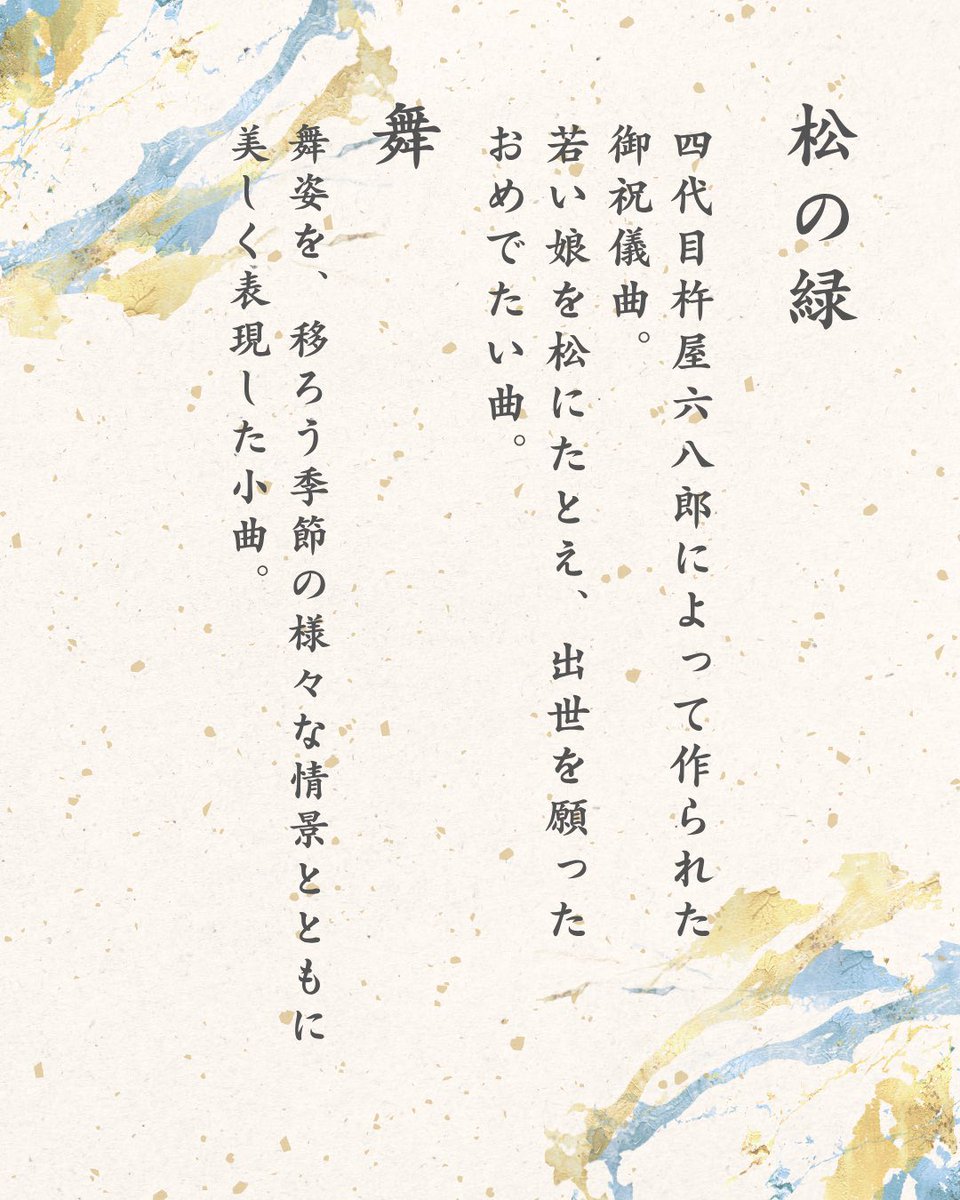 松の緑
四代目杵屋六八郎によって作られた
御祝儀曲。
若い娘を松にたとえ、出世を願った
おめでたい曲。
舞
舞姿を、移ろう季節の様々な情景とともに
美しく表現した小曲。